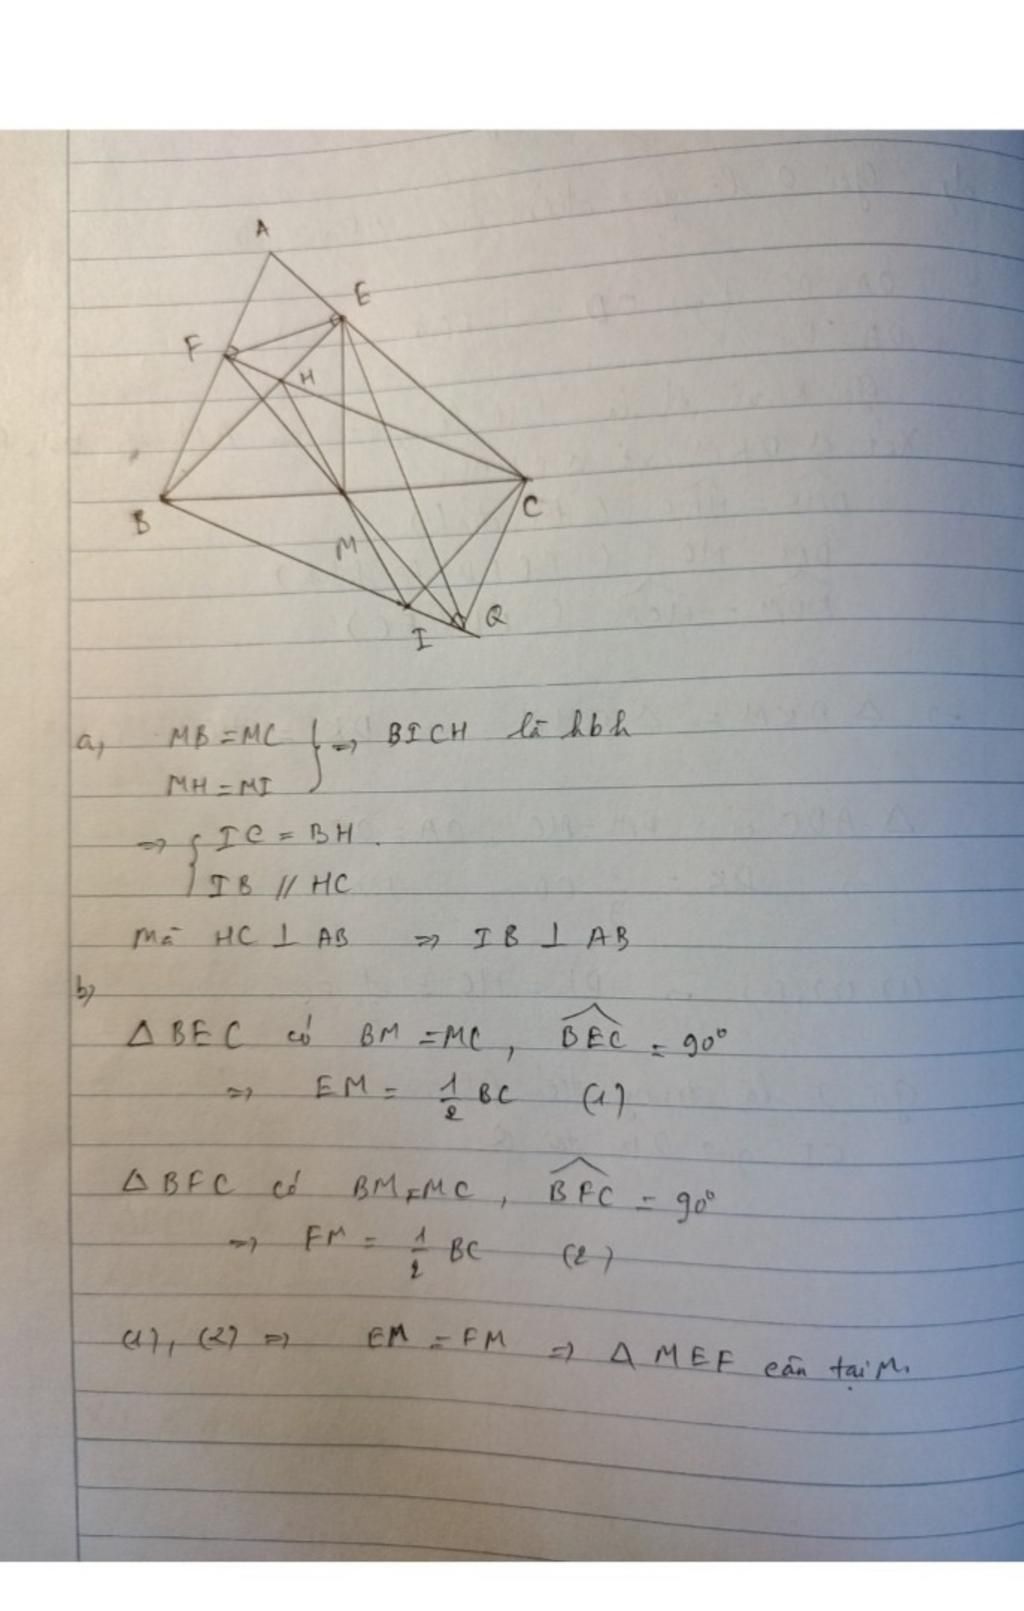 A
E
F
H
B
C
M
I
Q
a, MB = MC } => BICH là hbh
MH = MI
=> { IC = BH.
IB // HC
Mà HC ⊥ AB => IB ⊥ AB
b,
Δ BEC có BM = MC, \widehat{BEC} = 90°
=> EM = 1/2 BC (1)
Δ BFC có BM = MC, \widehat{BFC} = 90°
=> FM = 1/2 BC (2)
(1), (2) => EM = FM => Δ MEF cân tại M.